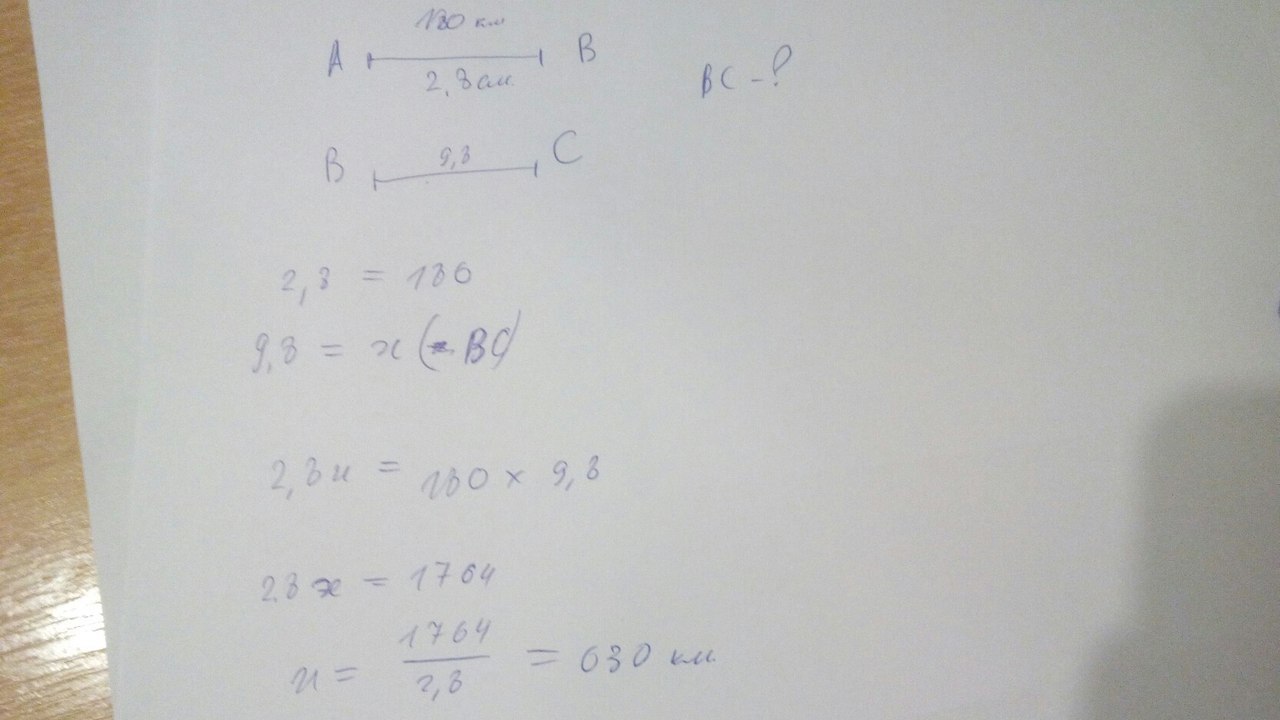 180 км
A B
2,8 см
BC - ?
B 9,8 C
2,8 = 180
9,8 = x (= BC)
2,8x = 180 × 9,8
2.8x = 1764
x = 1764 / 2,8 = 630 км